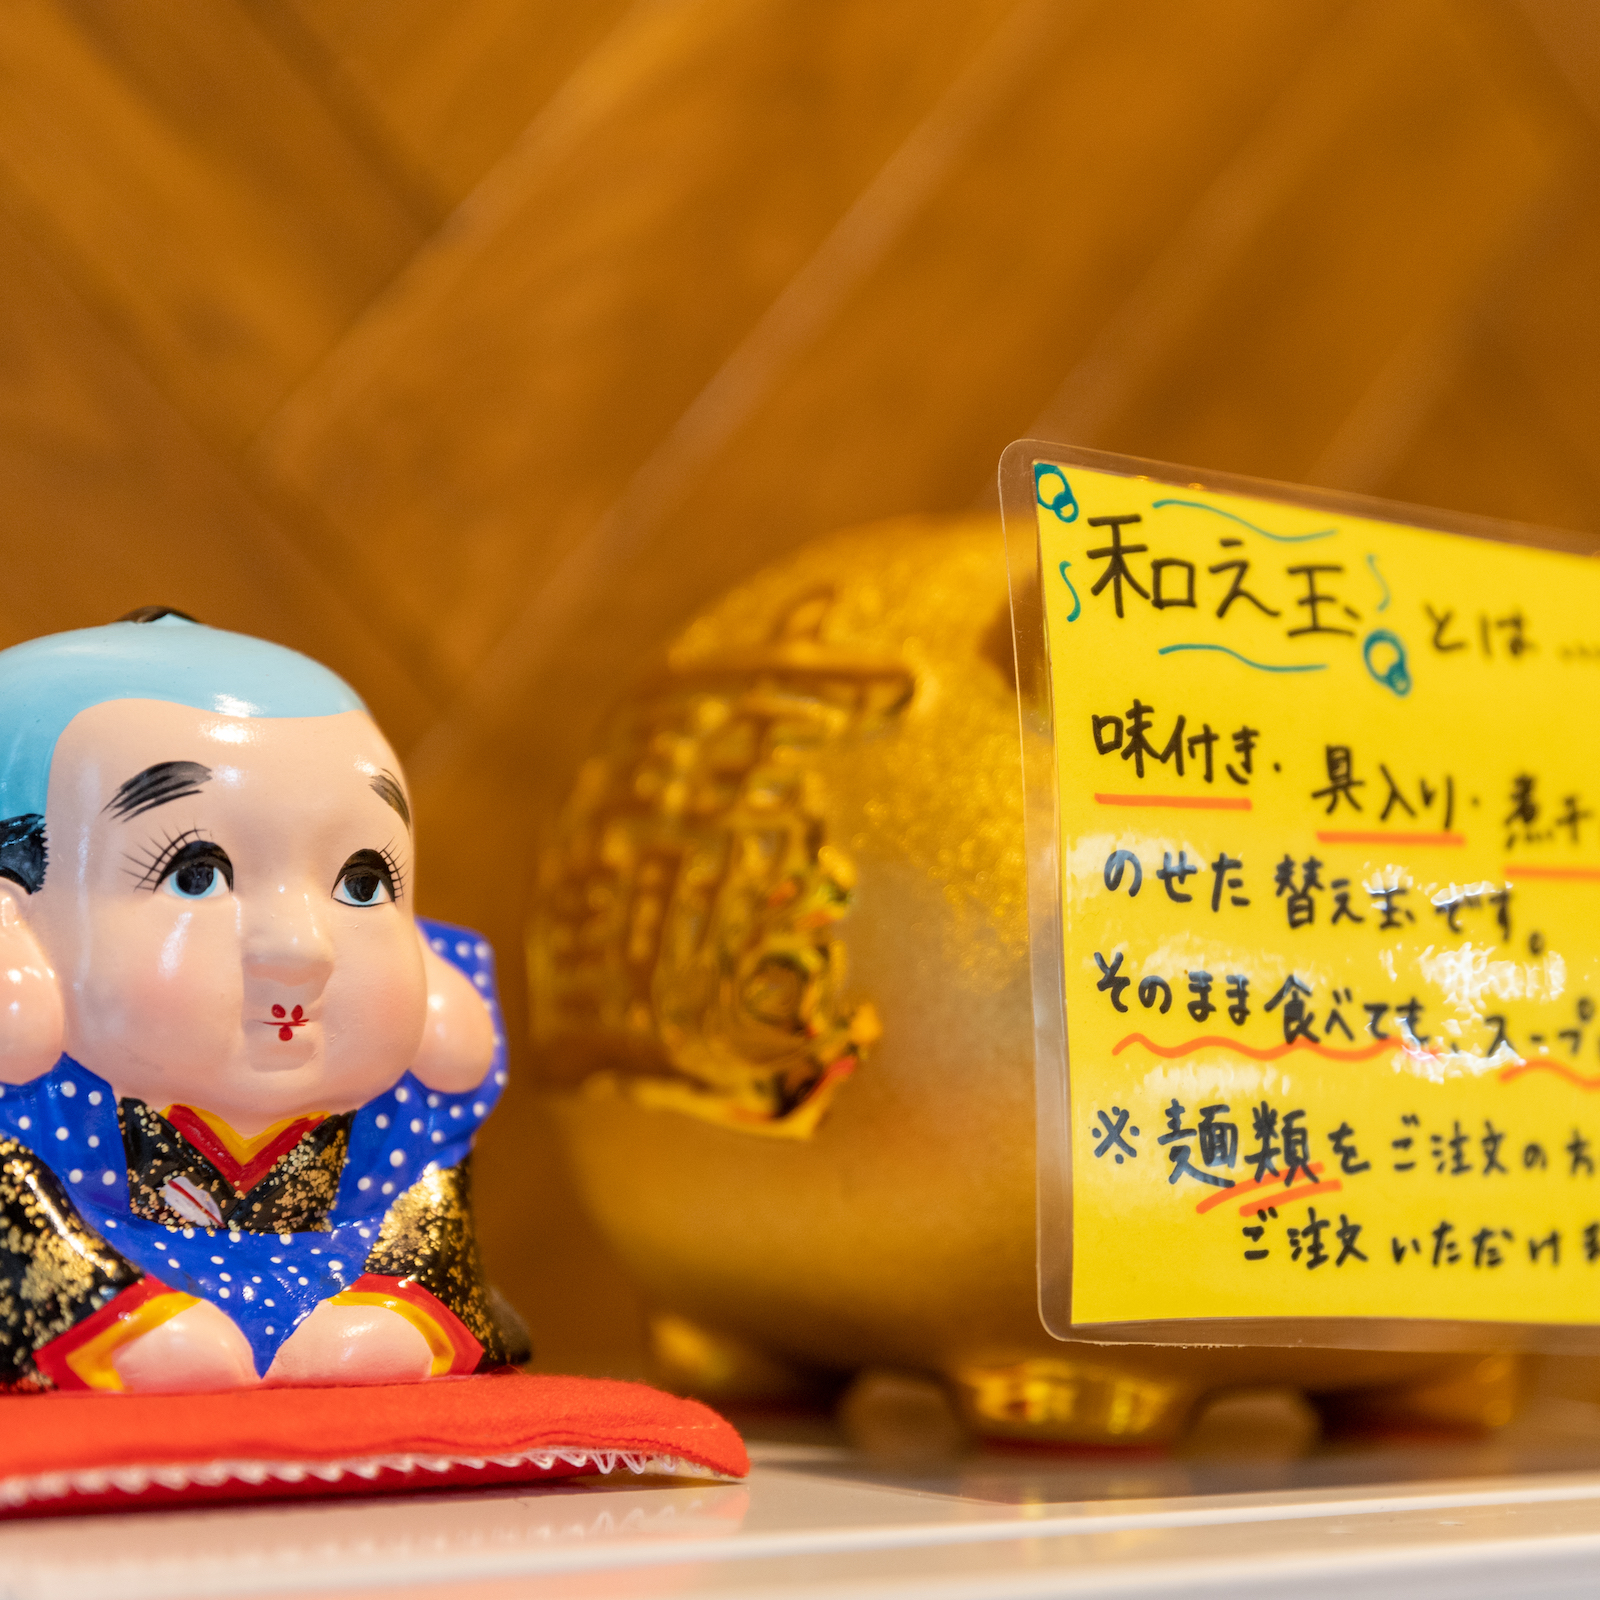 和え玉 とは....
味付き・具入り・煮干
のせた替え玉です。
そのまま食べても、スープ
※麺類をご注文の方
ご注文いただけま